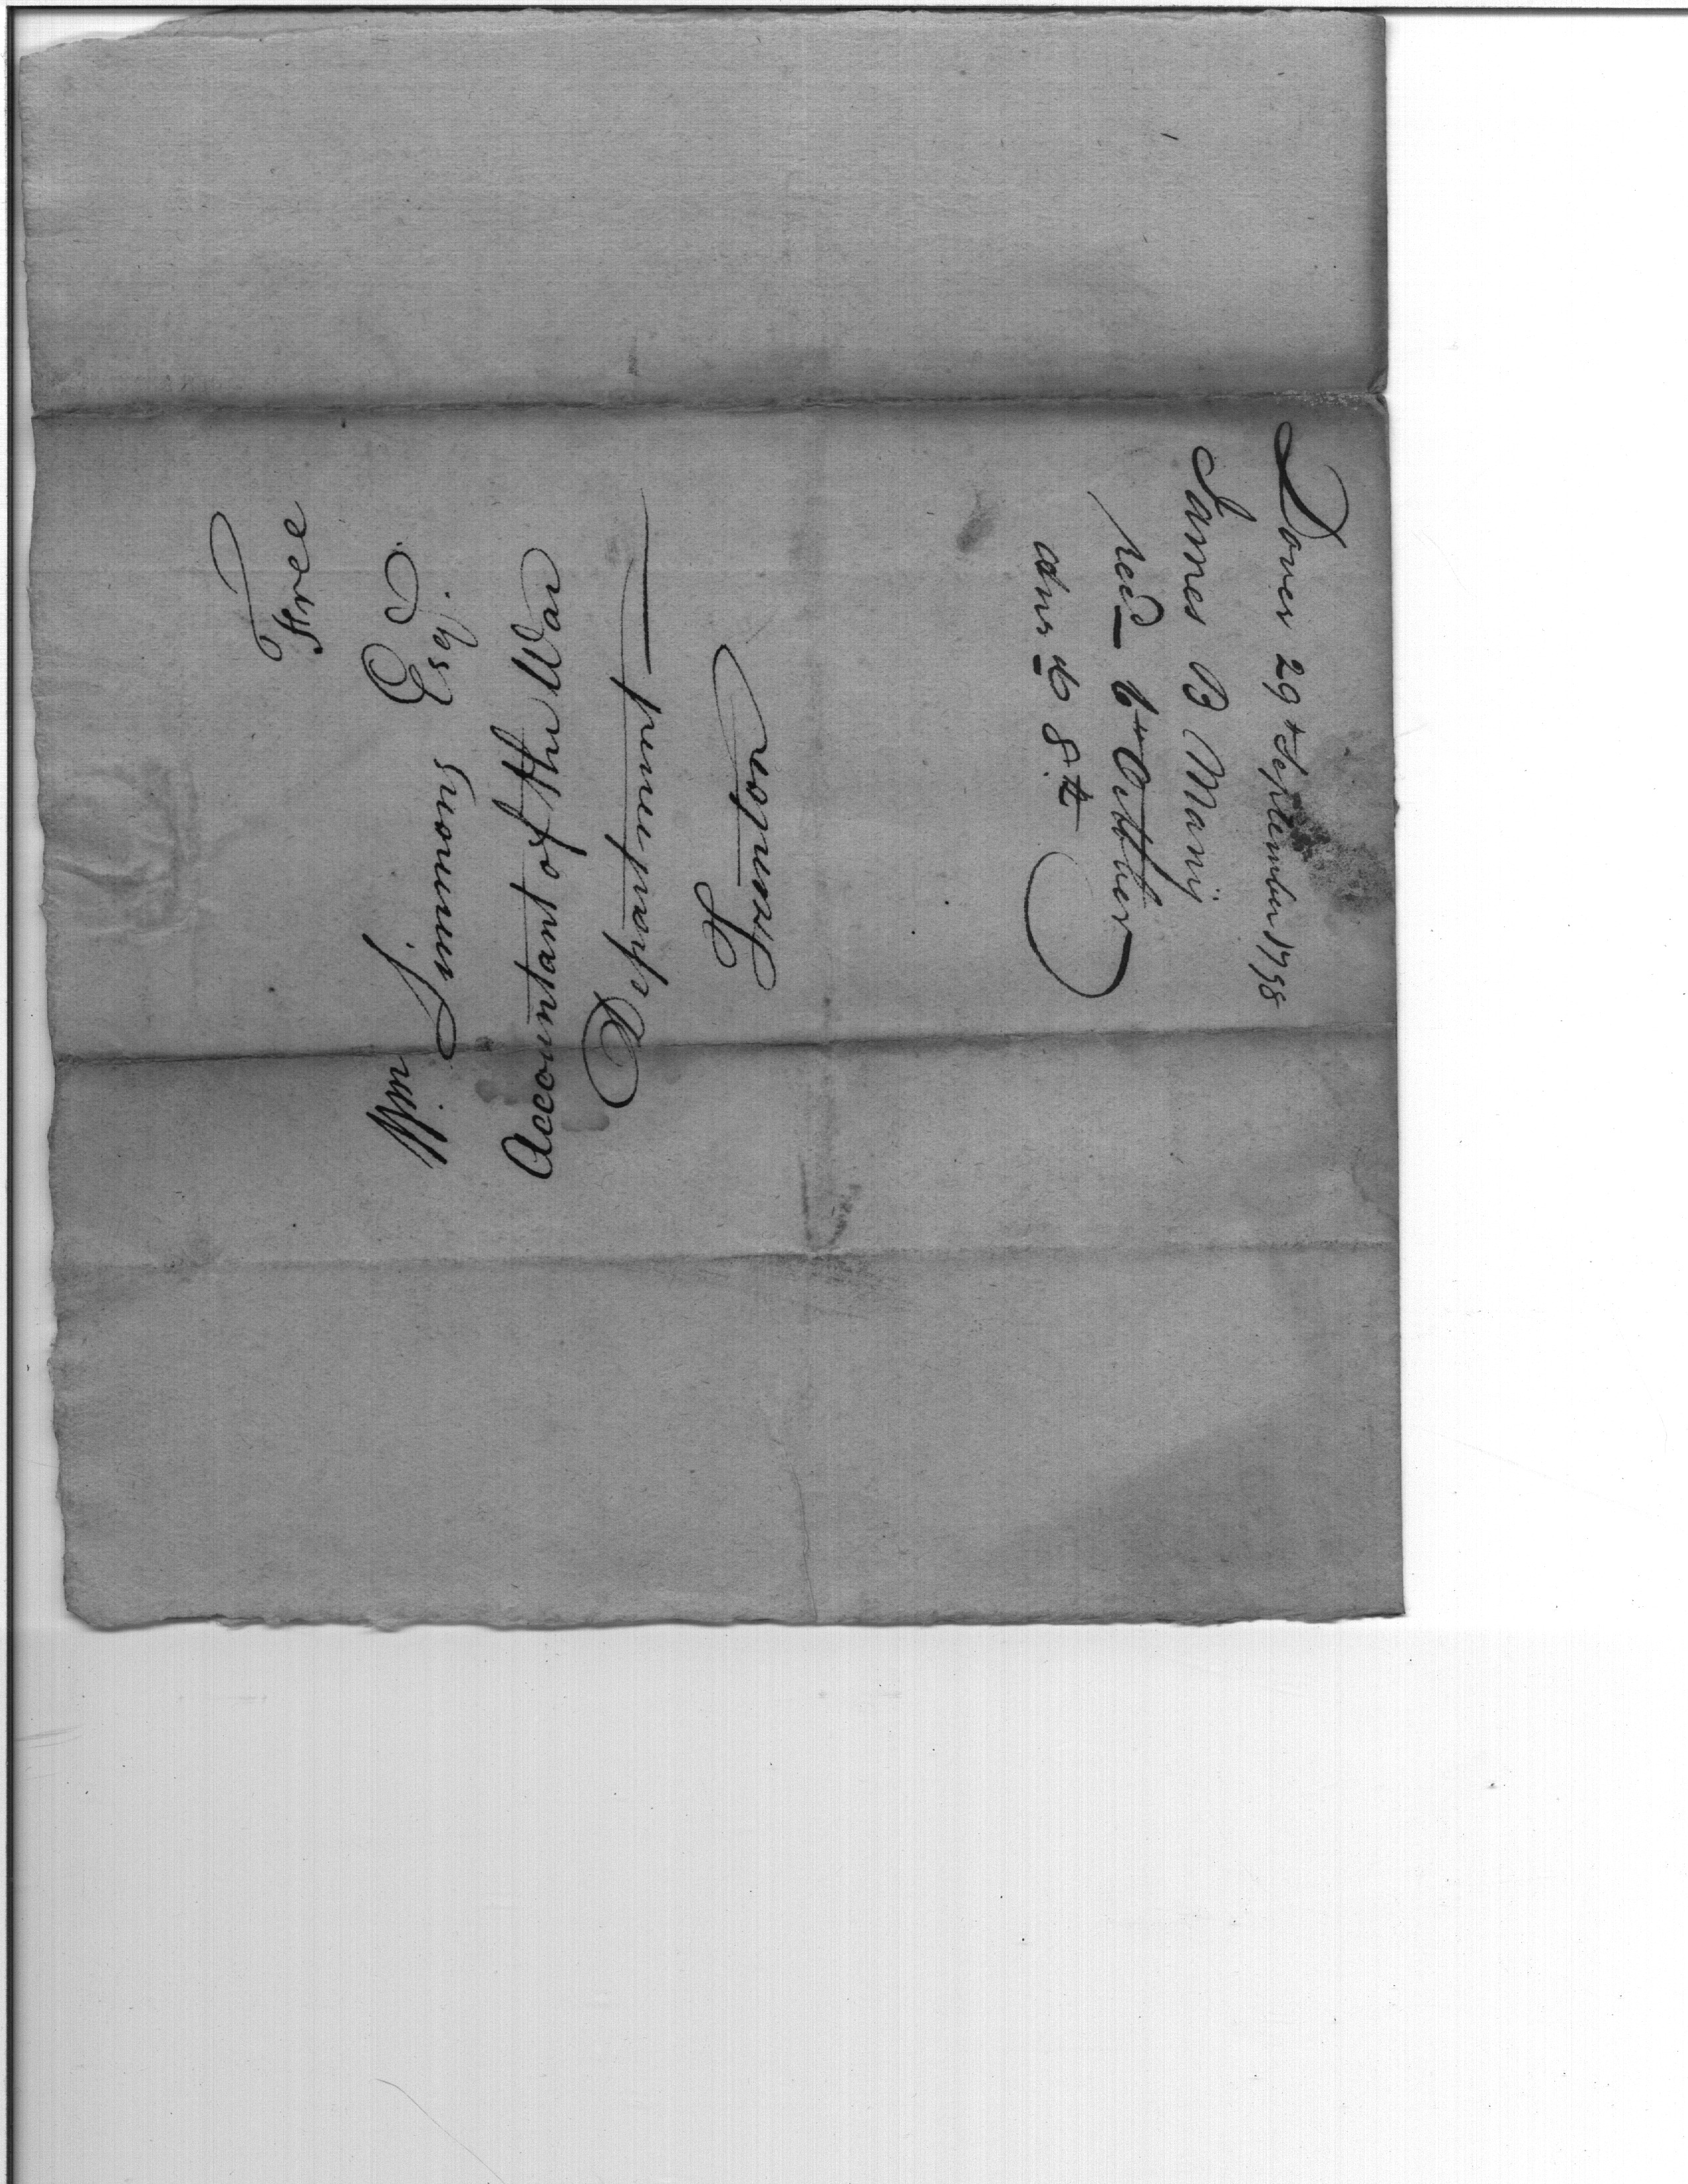 Free
Wm Simmons Esqr.
Accountant of the War
Department
Trenton
Dover 29th September 1798
James B Many
recd 6th October
answd 8th